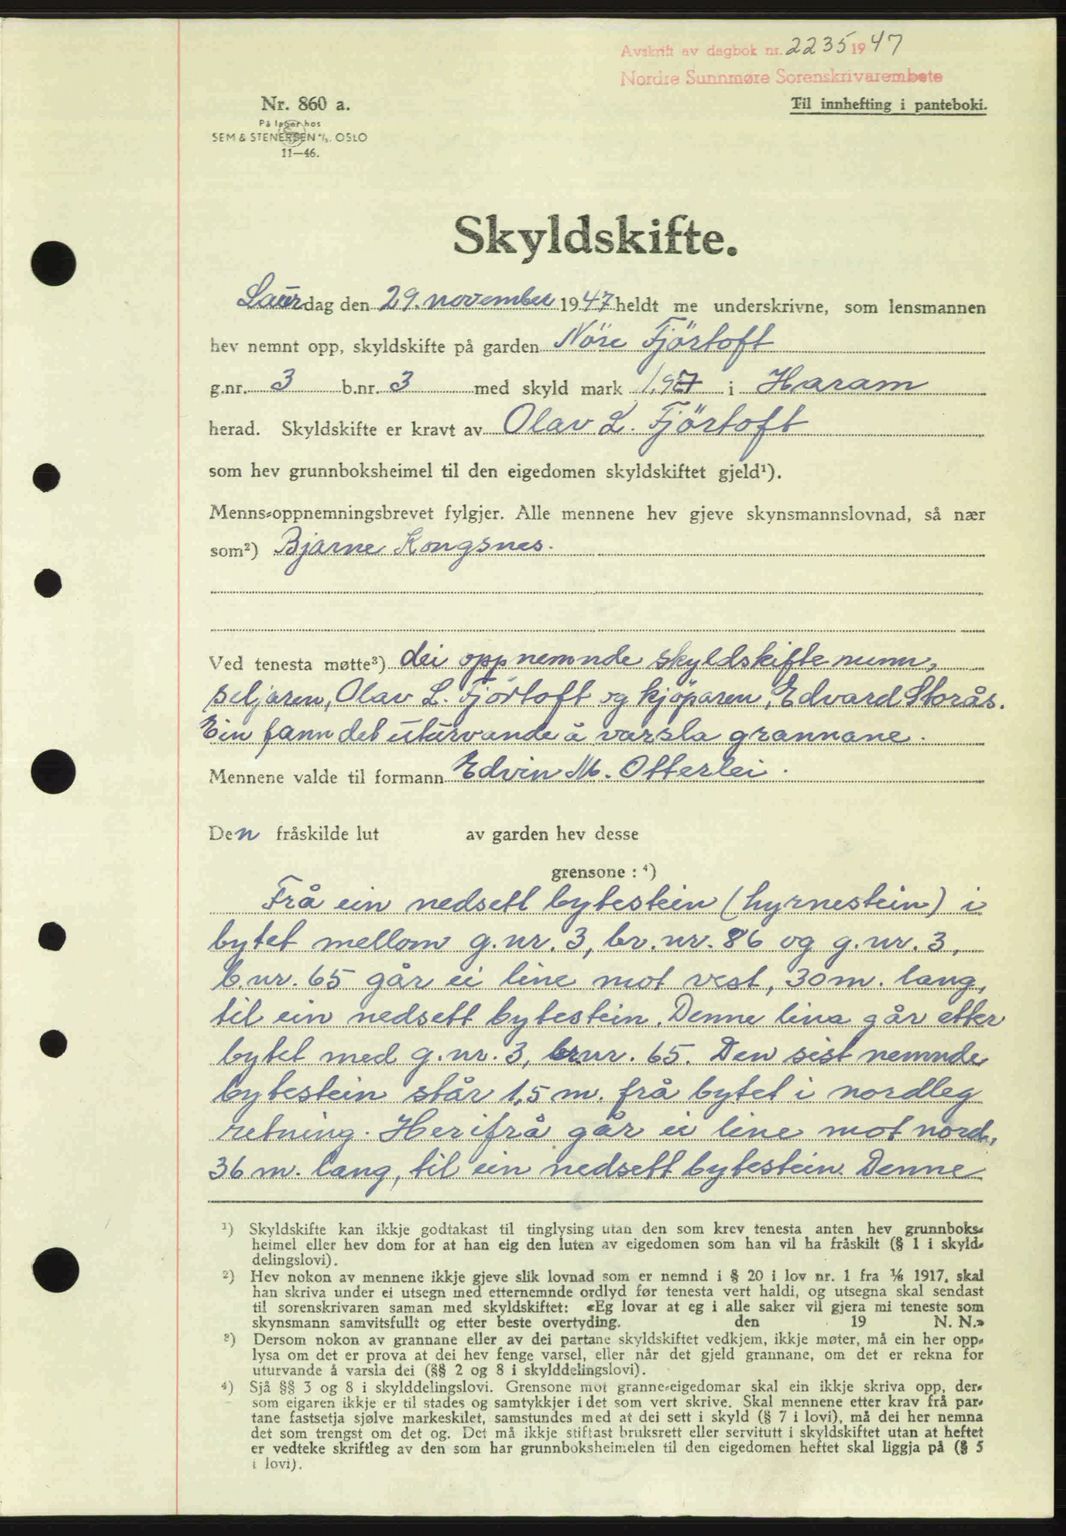 Avskrift av dagbok nr. 2235 1947
Nordre Sunnmøre Sorenskrivarembete
Nr. 860 a.
På lager hos
SEM & STENERSEN A/S. OSLO
11—46.
Til innhefting i panteboki.
Skyldskifte.
Laurdag den 29. november 1947 heldt me underskrivne, som lensmannen
hev nemnt opp, skyldskifte på garden Nöre Fjörtoft
g.nr. 3 b.nr. 3 med skyld mark i Haram
herad. Skyldskifte er kravt av Olav L. Fjörtoft
som hev grunnboksheimel til den eigedomen skyldskiftet gjeld¹).
Menns-oppnemningsbrevet fylgjer. Alle mennene hev gjeve skynsmannslovnad, så nær
som²) Bjarne Kongsnes.
Ved tenesta møtte³) dei oppnemnde skyldskiftemenn,
seljaren, Olav L. Fjörtoft og kjöparen, Edvard Storås.
Ein fann det uturvande å varsla grannane.
Mennene valde til formann Edvin M. Otterlei.
Den fråskilde lut av garden hev desse
grensone : ⁴)
Frå ein nedsett bytestein (hyrnestein) i
bytet mellom g.nr. 3, br.nr. 86 og g.nr. 3,
b.nr. 65 går ei line mot vest, 30 m. lang,
til ein nedsett bytestein. Denne lina går etter
bytet med g.nr. 3, br.nr. 65. Den sist nemnde
bytestein står 1,5 m. frå bytet i nordleg
retning. Herifrå går ei line mot nord,
36 m. lang, til ein nedsett bytestein. Denne
¹) Skyldskifte kan ikkje godtakast til tinglysing utan den som krev tenesta anten hev grunnboks-
heimel eller hev dom for at han eig den luten av eigedomen som han vil ha fråskilt (§ 1 i skyld-
delingslovi).
²) Hev nokon av mennene ikkje gjeve slik lovnad som er nemnd i § 20 i lov nr. 1 fra ⅙ 1917, skal
han skriva under ei utsegn med etternemnde ordlyd før tenesta vert haldi, og utsegna skal sendast
til sorenskrivaren saman med skyldskiftet: «Eg lovar at eg i alle saker vil gjera mi teneste som
skynsmann samvitsfullt og etter beste overtyding. den 19 N. N.»
³) Dersom nokon av grannane eller av dei partane skyldskiftet vedkjem, ikkje møter, må ein her opp-
lysa om det er prova at dei hev fenge varsel, eller når det gjeld grannane, om det er rekna for
uturvande å varsla dei (§§ 2 og 8 i skylddelingslovi).
⁴) Sjå §§ 3 og 8 i skylddelingslovi. Grensone mot granne-eigedomar skal ein ikkje skriva opp, der-
som eigaren ikkje er til stades og samtykkjer i det som vert skrive. Skal mennene etter krav frå par-
tane fastsetja sjølve markeskilet, samstundes med at dei sett i skyld (§ 7 i lovi), må dei her nemna
det som trengst om det og. Det må ikkje stiftast bruksrett eller servitutt i skyldskiftet utan at heftet
er vedteke skriftleg av den som har grunnboksheimelen til den eigedomen heftet skal liggja på (§ 5
i lovi).